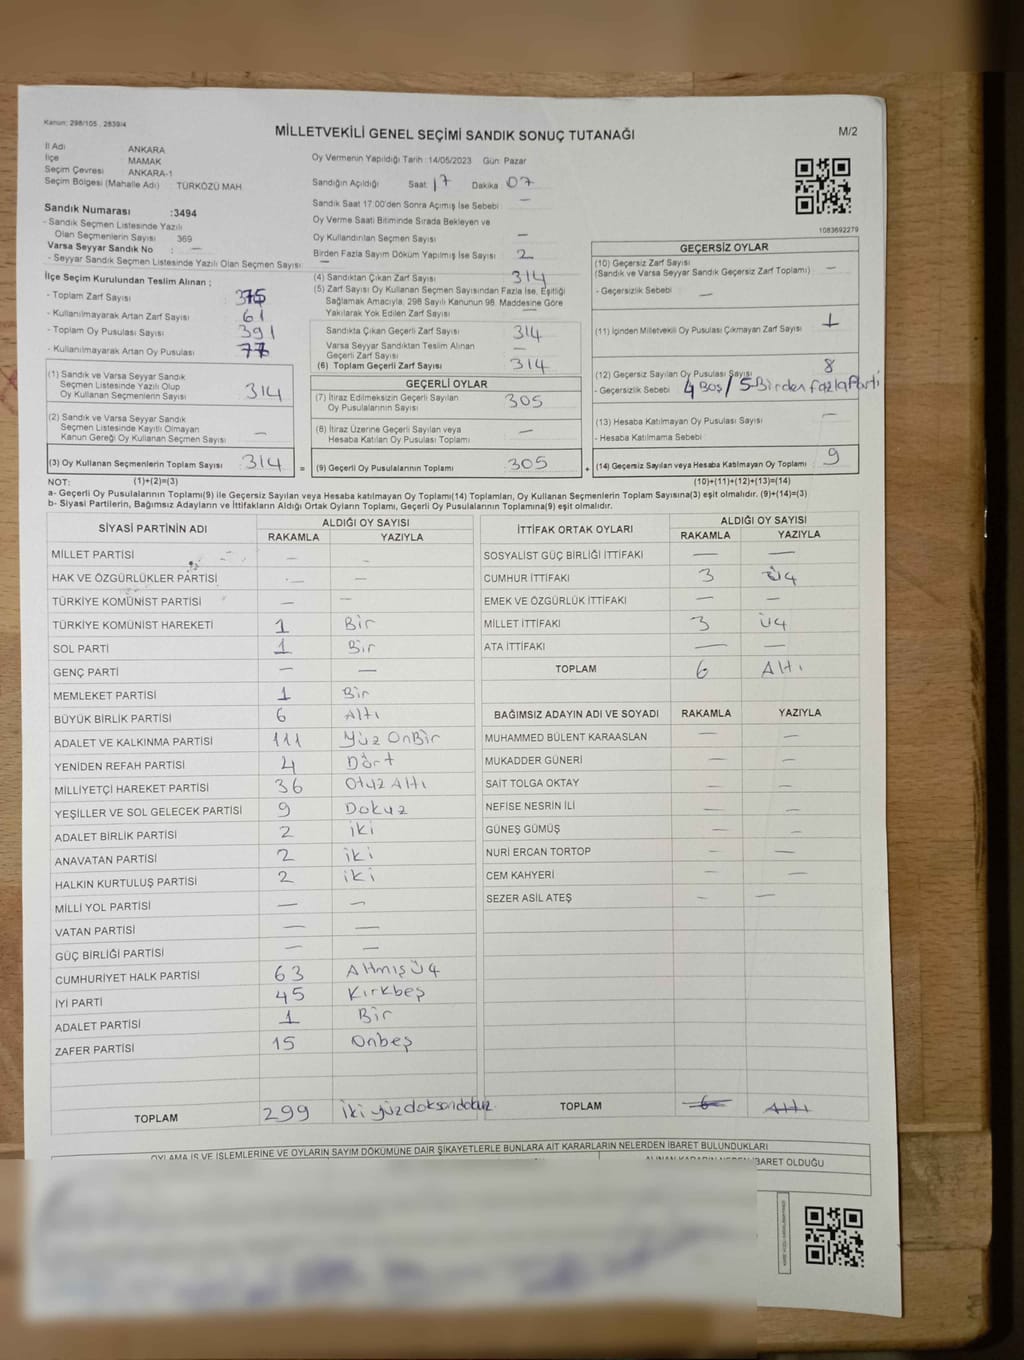 Kanun: 298/105 , 2839/4
MİLLETVEKİLİ GENEL SEÇİMİ SANDIK SONUÇ TUTANAĞI
M/2
İl Adı ANKARA
İlçe MAMAK
Seçim Çevresi ANKARA-1
Seçim Bölgesi (Mahalle Adı) TÜRKÖZÜ MAH
Sandık Numarası :3494
- Sandık Seçmen Listesinde Yazılı
Olan Seçmenlerin Sayısı 369
Varsa Seyyar Sandık No : —
- Seyyar Sandık Seçmen Listesinde Yazılı Olan Seçmen Sayısı: —
İlçe Seçim Kurulundan Teslim Alınan ;
- Toplam Zarf Sayısı 375
- Kullanılmayarak Artan Zarf Sayısı 61
- Toplam Oy Pusulası Sayısı 391
- Kullanılmayarak Artan Oy Pusulası 77
(1) Sandık ve Varsa Seyyar Sandık
Seçmen Listesinde Yazılı Olup
Oy Kullanan Seçmenlerin Sayısı 314
(2) Sandık ve Varsa Seyyar Sandık
Seçmen Listesinde Kayıtlı Olmayan
Kanun Gereği Oy Kullanan Seçmen Sayısı —
(3) Oy Kullanan Seçmenlerin Toplam Sayısı 314
Oy Vermenin Yapıldığı Tarih :14/05/2023 Gün: Pazar
Sandığın Açıldığı Saat 17 Dakika 07
Sandık Saat 17:00'den Sonra Açımış İse Sebebi —
Oy Verme Saati Bitiminde Sırada Bekleyen ve
Oy Kullandırılan Seçmen Sayısı —
Birden Fazla Sayım Döküm Yapılmış İse Sayısı 2
(4) Sandıktan Çıkan Zarf Sayısı 314
(5) Zarf Sayısı Oy Kullanan Seçmen Sayısından Fazla İse, Eşitliği
Sağlamak Amacıyla, 298 Sayılı Kanunun 98. Maddesine Göre
Yakılarak Yok Edilen Zarf Sayısı —
Sandıkta Çıkan Geçerli Zarf Sayısı 314
Varsa Seyyar Sandıktan Teslim Alınan
Geçerli Zarf Sayısı —
(6) Toplam Geçerli Zarf Sayısı 314
GEÇERLİ OYLAR
(7) İtiraz Edilmeksizin Geçerli Sayılan
Oy Pusulalarının Sayısı 305
(8) İtiraz Üzerine Geçerli Sayılan veya
Hesaba Katılan Oy Pusulası Toplamı —
= (9) Geçerli Oy Pusulalarının Toplamı 305
1083692279
GEÇERSİZ OYLAR
(10) Geçersiz Zarf Sayısı
(Sandık ve Varsa Seyyar Sandık Geçersiz Zarf Toplamı) —
- Geçersizlik Sebebi —
(11) İçinden Milletvekili Oy Pusulası Çıkmayan Zarf Sayısı 1
(12) Geçersiz Sayılan Oy Pusulası Sayısı 8
- Geçersizlik Sebebi 4 Boş / 5 Birden fazla Parti
(13) Hesaba Katılmayan Oy Pusulası Sayısı —
- Hesaba Katılmama Sebebi
+ (14) Geçersiz Sayılan veya Hesaba Katılmayan Oy Toplamı 9
NOT: (1)+(2)=(3) (10)+(11)+(12)+(13)=(14)
a- Geçerli Oy Pusulalarının Toplamı(9) ile Geçersiz Sayılan veya Hesaba katılmayan Oy Toplamı(14) Toplamları, Oy Kullanan Seçmenlerin Toplam Sayısına(3) eşit olmalıdır. (9)+(14)=(3)
b- Siyasi Partilerin, Bağımsız Adayların ve İttifakların Aldığı Ortak Oyların Toplamı, Geçerli Oy Pusulalarının Toplamına(9) eşit olmalıdır.
SİYASİ PARTİNİN ADI ALDIĞI OY SAYISI
RAKAMLA YAZIYLA
MİLLET PARTİSİ — —
HAK VE ÖZGÜRLÜKLER PARTİSİ — —
TÜRKİYE KOMÜNİST PARTİSİ — —
TÜRKİYE KOMÜNİST HAREKETİ 1 Bir
SOL PARTİ 1 Bir
GENÇ PARTİ — —
MEMLEKET PARTİSİ 1 Bir
BÜYÜK BİRLİK PARTİSİ 6 Altı
ADALET VE KALKINMA PARTİSİ 111 Yüz OnBir
YENİDEN REFAH PARTİSİ 4 Dört
MİLLİYETÇİ HAREKET PARTİSİ 36 Otuz Altı
YEŞİLLER VE SOL GELECEK PARTİSİ 9 Dokuz
ADALET BİRLİK PARTİSİ 2 iki
ANAVATAN PARTİSİ 2 iki
HALKIN KURTULUŞ PARTİSİ 2 iki
MİLLİ YOL PARTİSİ — —
VATAN PARTİSİ — —
GÜÇ BİRLİĞİ PARTİSİ — —
CUMHURİYET HALK PARTİSİ 63 Altmış Üç
İYİ PARTİ 45 Kırkbeş
ADALET PARTİSİ 1 Bir
ZAFER PARTİSİ 15 Onbeş
TOPLAM 299 iki yüzdoksandokuz
İTTİFAK ORTAK OYLARI ALDIĞI OY SAYISI
RAKAMLA YAZIYLA
SOSYALİST GÜÇ BİRLİĞİ İTTİFAKI — —
CUMHUR İTTİFAKI 3 Üç
EMEK VE ÖZGÜRLÜK İTTİFAKI — —
MİLLET İTTİFAKI 3 Üç
ATA İTTİFAKI — —
TOPLAM 6 Altı
BAĞIMSIZ ADAYIN ADI VE SOYADI RAKAMLA YAZIYLA
MUHAMMED BÜLENT KARAASLAN — —
MUKADDER GÜNERİ — —
SAİT TOLGA OKTAY — —
NEFİSE NESRİN İLİ — —
GÜNEŞ GÜMÜŞ — —
NURİ ERCAN TORTOP — —
CEM KAHYERİ — —
SEZER ASİL ATEŞ — —
TOPLAM 6 Altı
OYLAMA İŞ VE İŞLEMLERİNE VE OYLARIN SAYIM DÖKÜMÜNE DAİR ŞİKAYETLERLE BUNLARA AİT KARARLARIN NELERDEN İBARET BULUNDUKLARI
ALINAN KARARIN NEDEN İBARET OLDUĞU